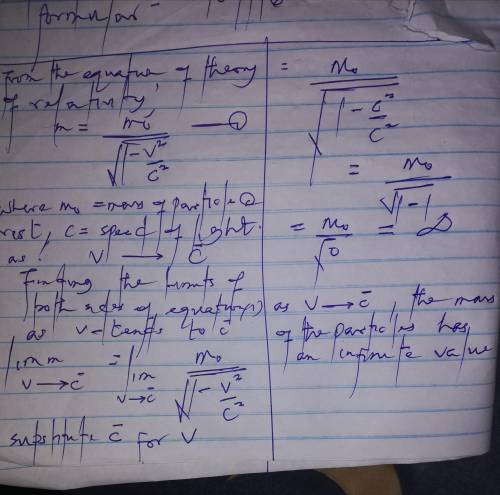 formular
From the equation of theory
of relativity,
m = m₀ / √(1 - v²/c²) — ①
where m₀ = mass of particle @
rest, c = speed of light.
as v → c̄
Finding the limits of
both sides of equation(1)
as v - tends to c̄
lim m = lim m₀ / √(1 - v²/c²)
v → c̄ v → c̄
substitute c̄ for v
= m₀ / √(1 - c²/c²)
= m₀ / √(1 - 1)
= m₀ / √0 = ∞
as v → c̄, the mass
of the particles has
an infinite value